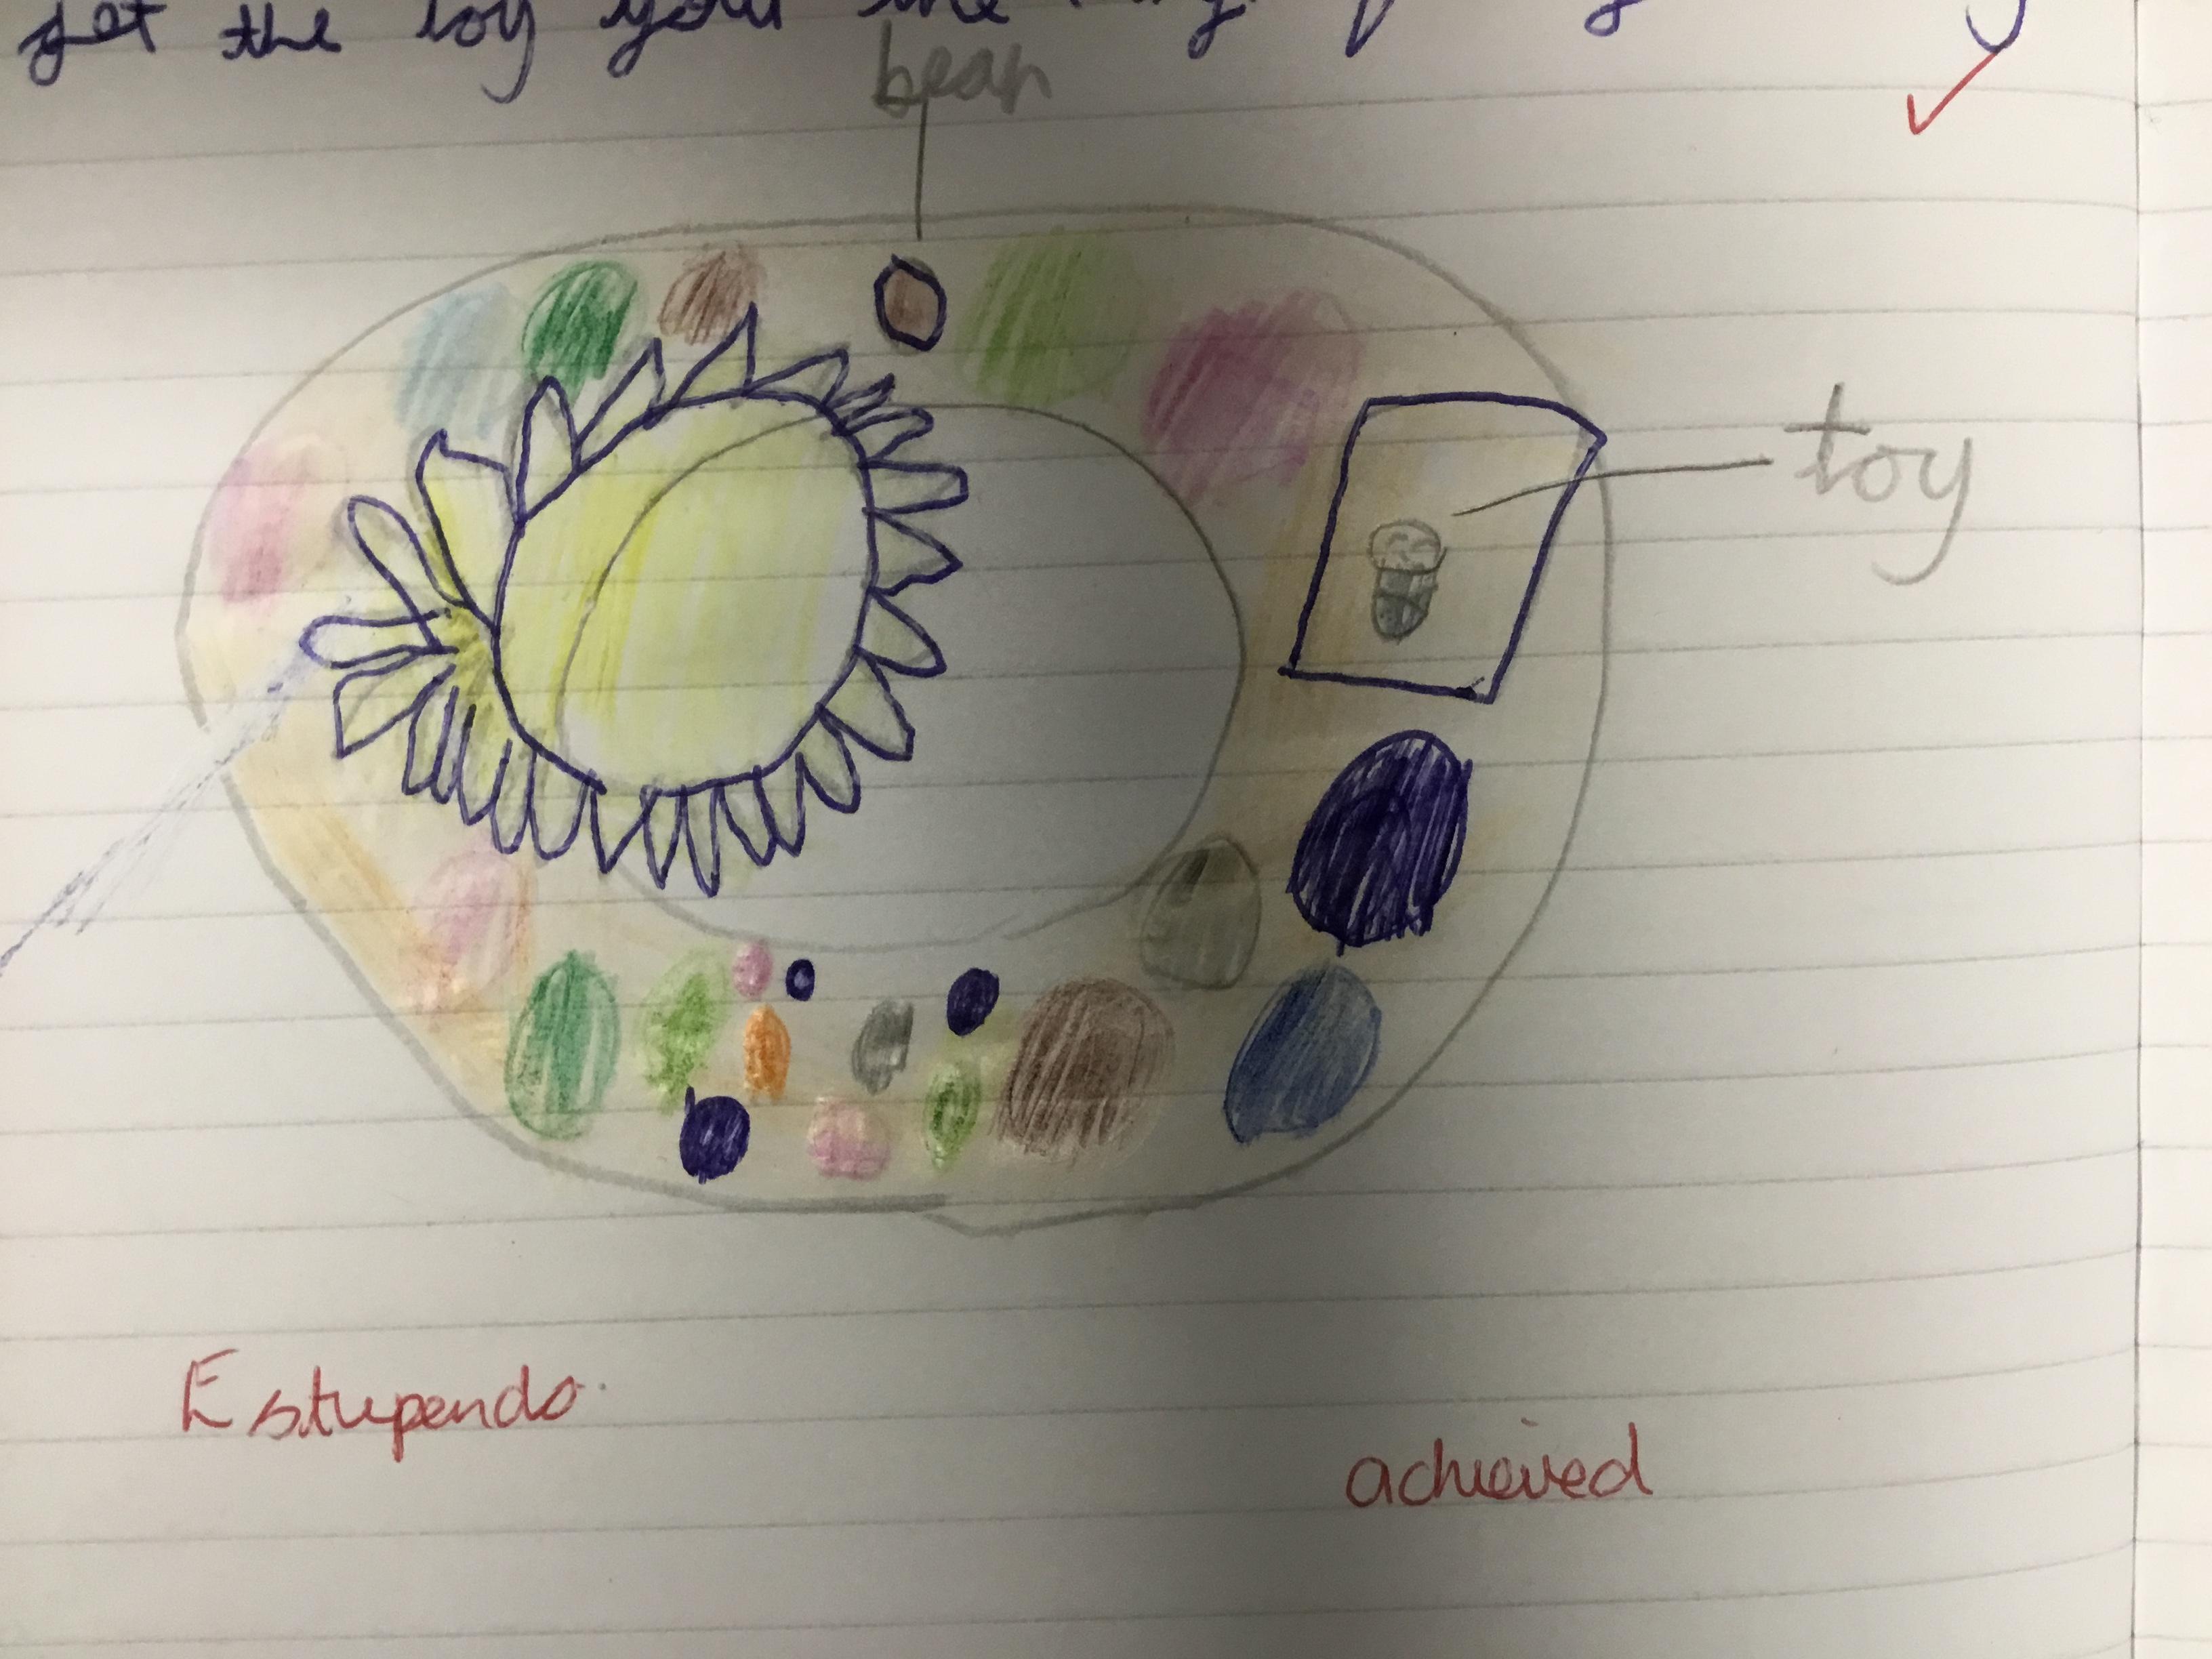 get the toy you the
bean
toy
Estupendo
achieved